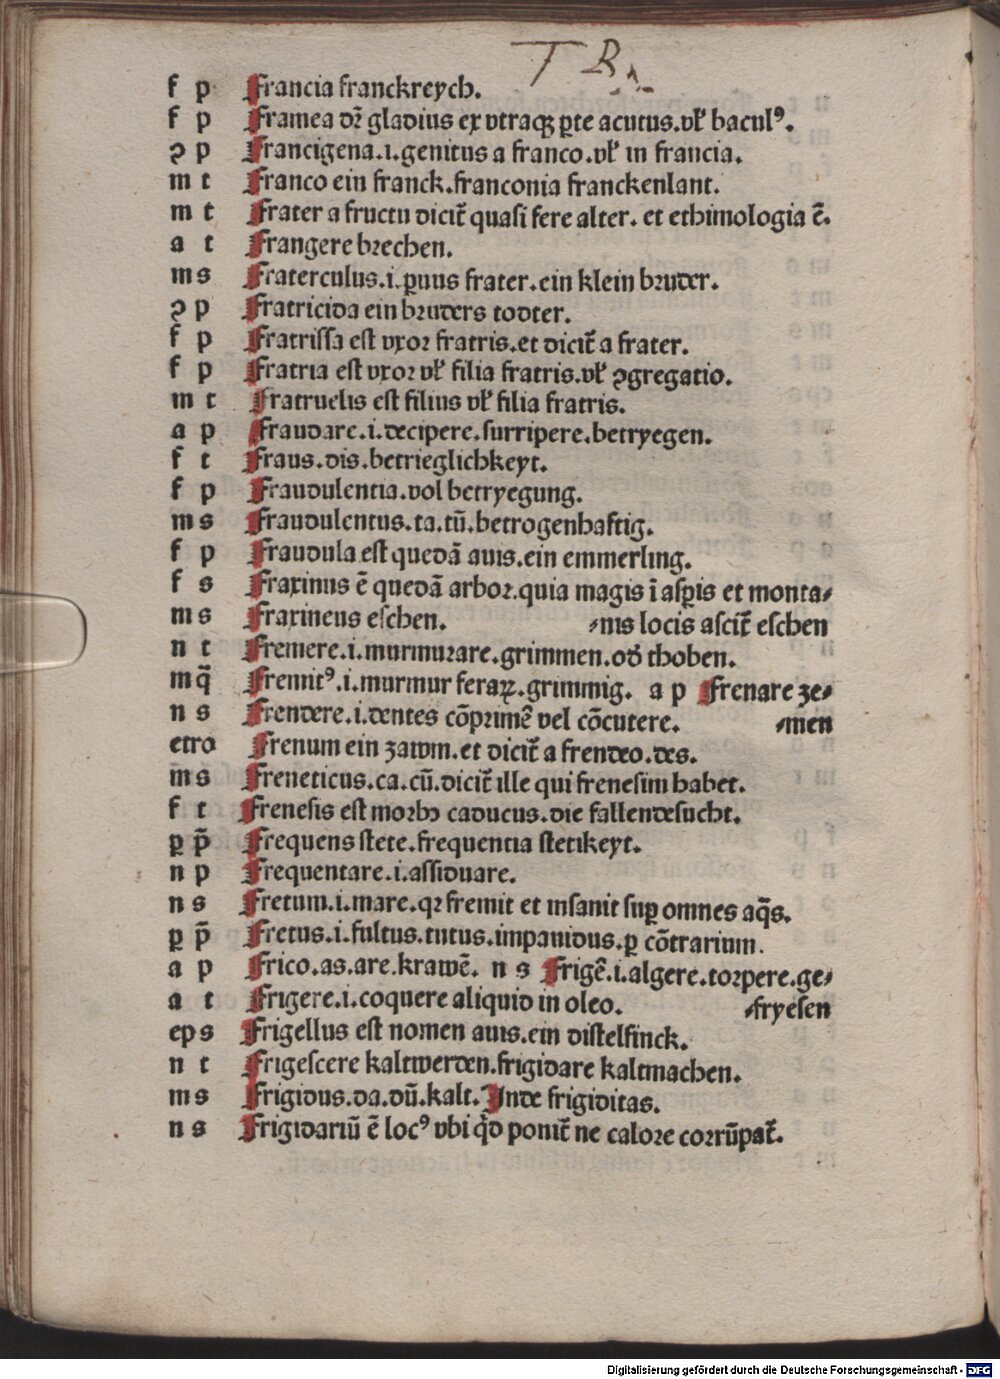 T R
f p Francia franckreych.
f p Framea dr̄ gladius ex vtraqꝫ ꝑte acutus.vl̛ baculꝰ.
ꝯ p Francigena.i.genitus a franco.vl̛ in francia.
m t Franco ein franck.franconia franckenlant.
m t Frater a fructu dicit̄ quasi fere alter. et ethimologia ē.
a t Frangere brechen.
m s Fraterculus.i.ꝑuus frater.ein klein bruder.
ꝯ p Fratricida ein bruders todter.
f p Fratrissa est vxor fratris.et dicit̄ a frater.
f p Fratria est vxor vl̛ filia fratris.vl̛ ꝯgregatio.
m t Fratruelis est filius vl̛ filia fratris.
a p Fraudare.i.decipere.surripere.betryegen.
f t Fraus.dis.betrieglichkeyt.
f p Fraudulentia.vol betryegung.
m s Fraudulentus.ta.tū.betrogenhaftig.
f p Fraudula est quedā auis.ein emmerling.
f s Fraxinus ē quedā arbor.quia magis ī asꝑis et monta⸗
m s Fraxineus eschen. ⸗nis locis ascit̄ eschen
n t Fremere.i.murmurare.grimmen.od̓ thoben.
m q̄ Fremitꝰ.i.murmur feraꝝ.grimmig. a p Frenare ze⸗
n s Frendere.i.dentes cōprimē vel cōcutere. ⸗men
etro Frenum ein zawm.et dicit̄ a frendeo.des.
m s Freneticus.ca.cū.dicit̄ ille qui frenesim habet.
f t Frenesis est morbꝰ caducus.die fallendesucht.
ꝑ p̄ Frequens stete.frequentia stetikeyt.
n p Frequentare.i.assiduare.
n s Fretum.i.mare.qꝛ fremit et insanit suꝑ omnes aq̄s.
ꝑ p̄ Fretus.i.fultus.tutus.impauidus.ꝑ cōtrarium.
a p Frico.as.are.krawē. n s Frigē.i.algere.torpere.ge⸗
a t Frigere.i.coquere aliquid in oleo. ⸗fryesen
ep s Frigellus est nomen auis.ein distelfinck.
n t Frigescere kaltwerden.frigidare kaltmachen.
m s Frigidus.da.dū.kalt.Inde frigiditas.
n s Frigidariū ē locꝰ vbi qͥd ponit̄ ne calore corrūpat̄.
Digitalisierung gefördert durch die Deutsche Forschungsgemeinschaft - DFG